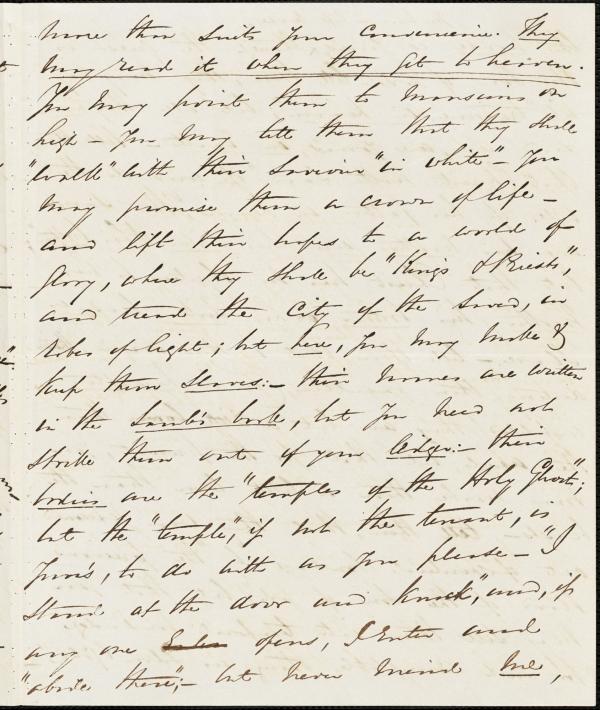 more than suits your convenience. They
may read it when they get to heaven.
You may point them to mansions on
high – you may tell them that they shall
"walk" with their Saviour "in white" – You
may promise them a crown of life –
and lift their hopes to a world of
glory, where they shall be "Kings & Priests",
and tread the City of the Saved, in
robes of light; but here, you may make &
keep them Slaves: – their names are written
in the Lamb's book, but you need not
strike them out of your ledger: – their
bodies are the "temples of the Holy Ghost";
but the "temple", if not the tenant, is
yours, to do with as you please – "I
stand at the door and knock", and, if
any one opens, I enter and
"abide there"; – but never mind me,